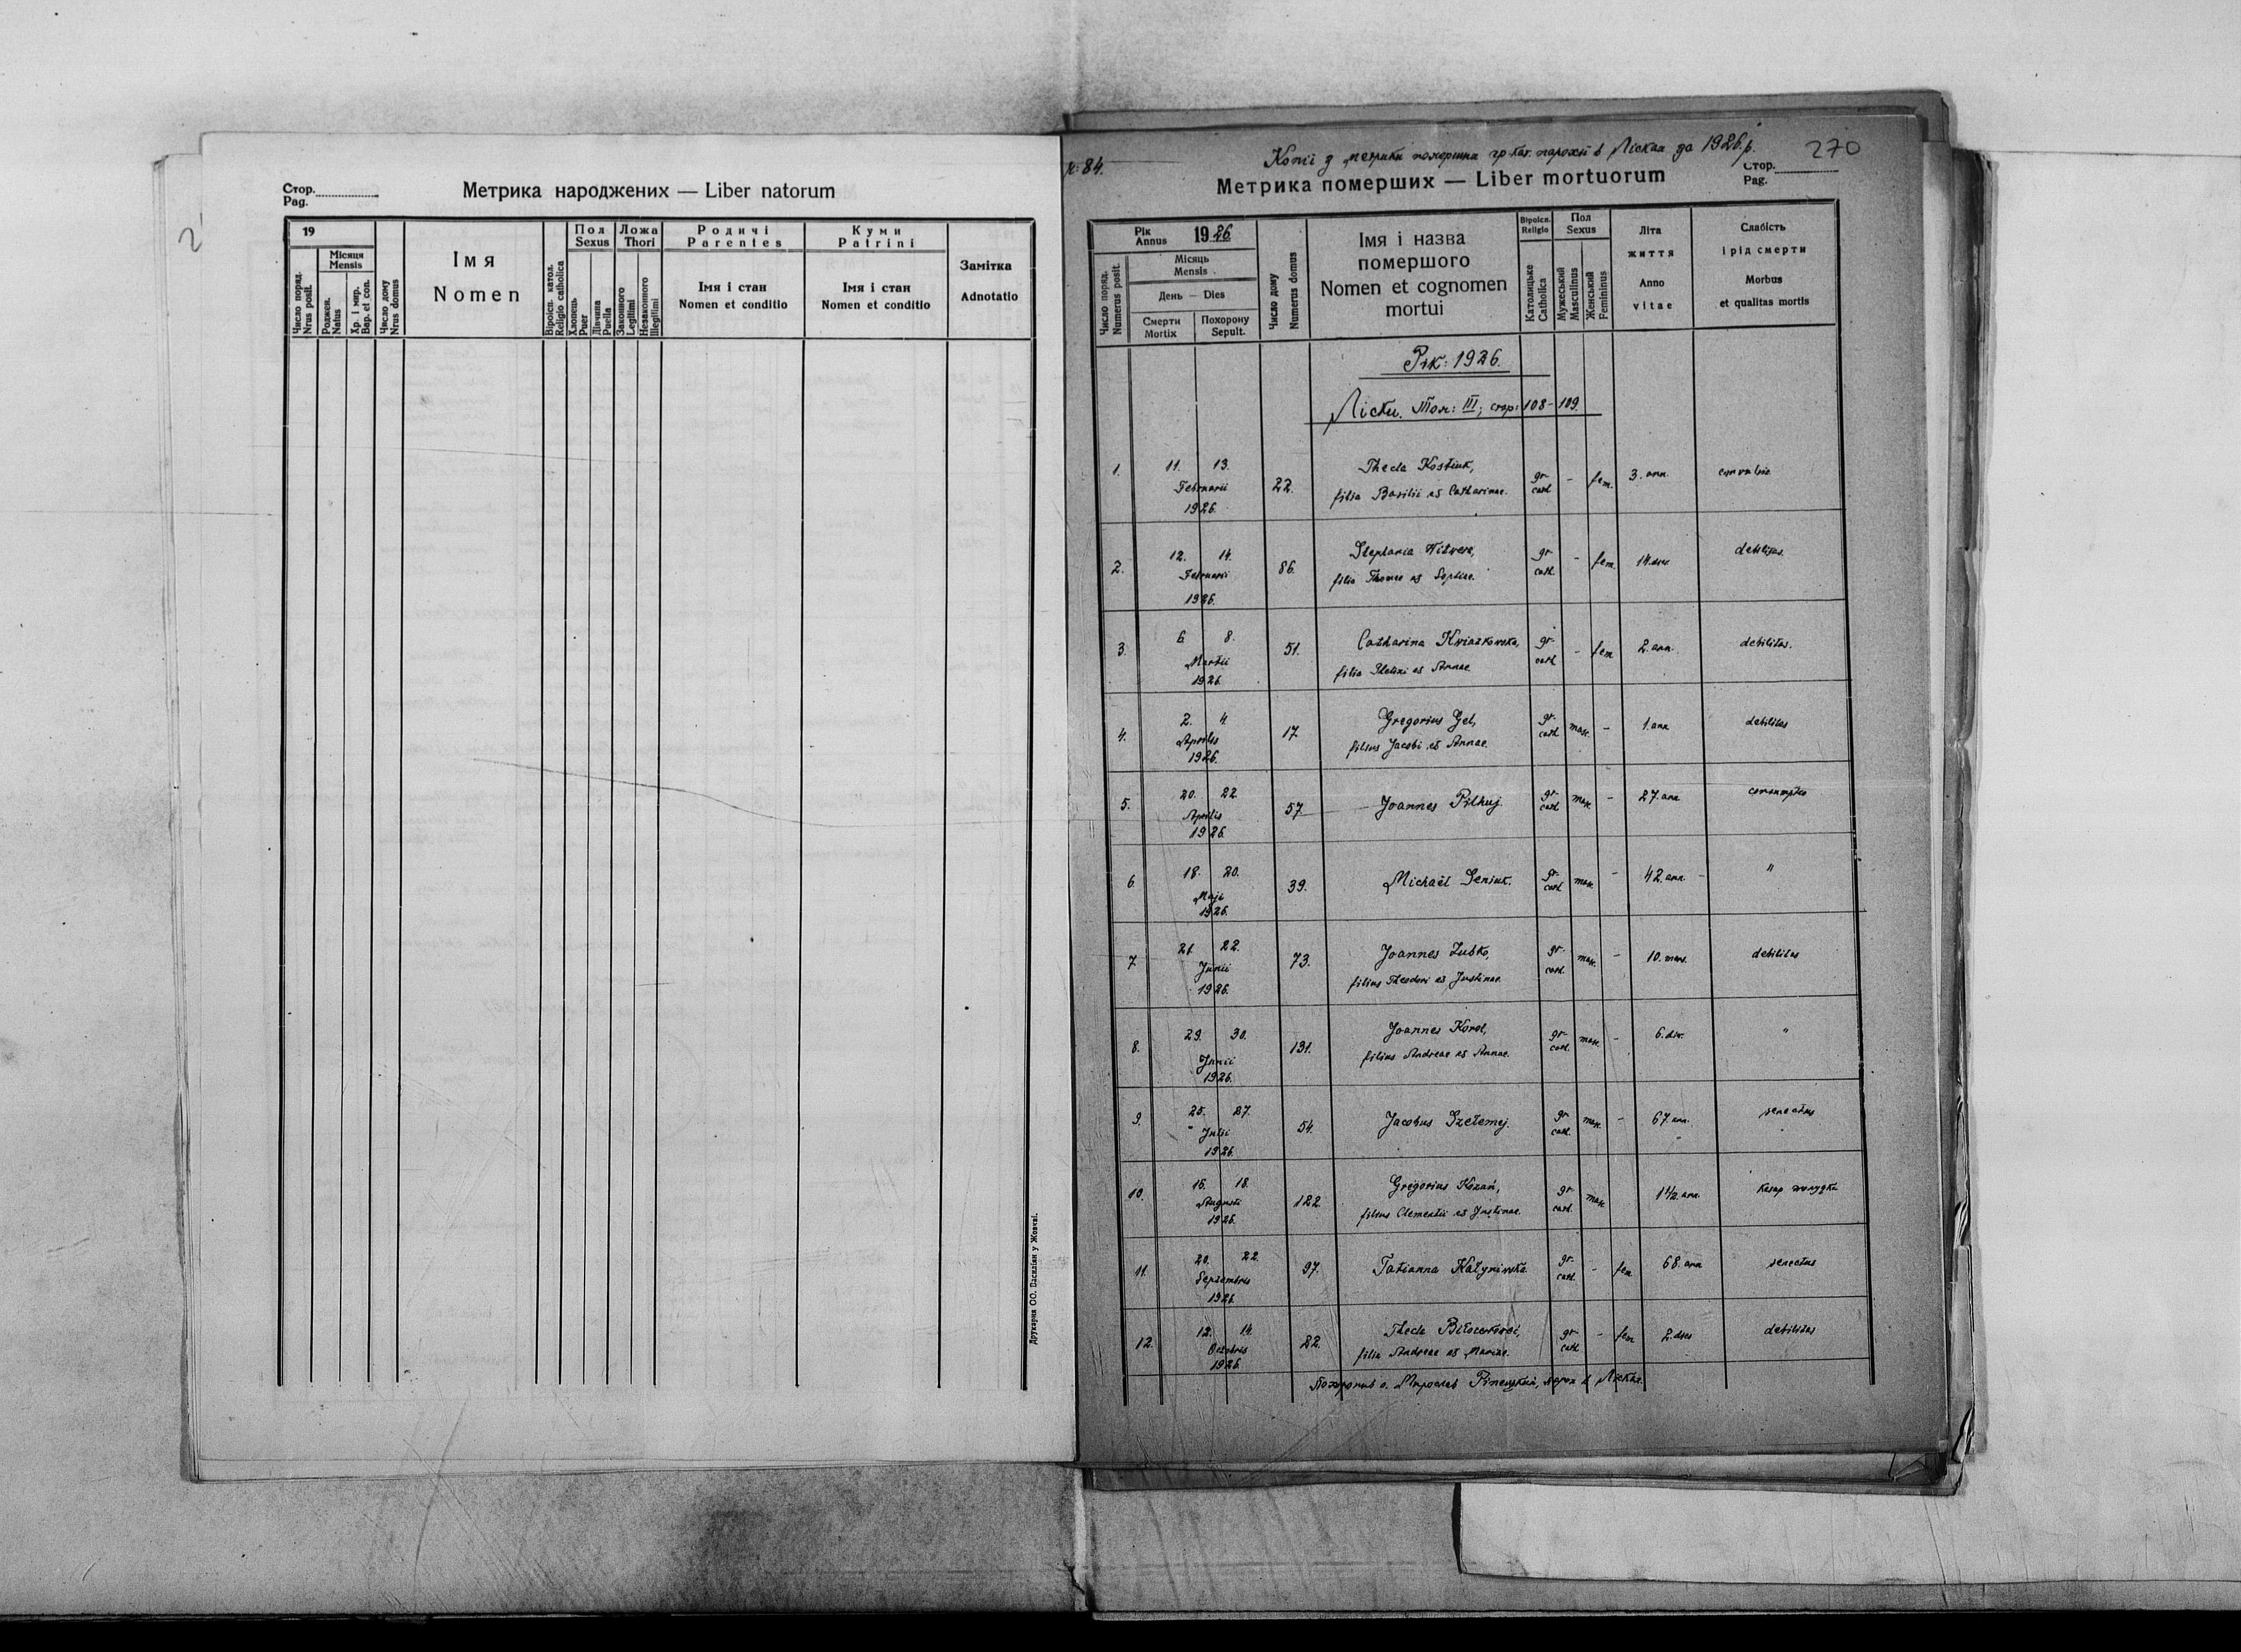 2
Стор.
Pag.
Метрика народжених — Liber natorum
19
Число поряд.
Nrus posit.
Місяця
Mensis
Роджен.
Natus
Хр. і мир.
Bap. et con.
Число дому
Nrus domus
Імя
Nomen
Віроісп. катол.
Religio catholica
Пол
Sexus
Хлопець
Puer
Дівчина
Puella
Ложа
Thori
Законного
Legitimi
Незаконного
Illegitimi
Родичі
Parentes
Імя і стан
Nomen et conditio
Куми
Patrini
Імя і стан
Nomen et conditio
Замітка
Adnotatio
Друкарня ОО. Василіян у Жовкві.
84.
Копії з метрики померших гр кат. парохії в Лісках за 1926 р.
270
Стор.
Pag.
Метрика померших — Liber mortuorum
Рік
Annus 1926
Число поряд.
Numerus posit.
Місяць
Mensis
День — Dies
Смерти
Mortix
Похорону
Sepult.
Число дому
Numerus domus
Імя і назва
помершого
Nomen et cognomen
mortui
Віроісп.
Religio
Католицьке
Catholica
Пол
Sexus
Мужеський
Masculinus
Женський
Femininus
Літа
життя
Anno
vitae
Слабість
і рід смерти
Morbus
et qualitas mortis
Рік: 1926.
Ліски. Том: III; стор: 108-109.
1. 11. 13. Februarii 1926. 22. Thecla Kostiuk, gr- cath - fem. 3. ann.
filia Basilii et Catharinae.
2. 12. 14. Februarii 1926. 86. Stephania gr- cath. - fem. 14. dies debilitas.
filia Thomae et Sophiae.
3. 6 8. Martii 1926. 51. Catharina Kwiatkowska, gr- cath - fem 2. ann. debilitas.
filia et Annae
4. 2. 4. Aprilis 1926. 17 Gregorius Gel, gr- cath masc. - 1. ann debilitas
filius Jacobi et Annae.
5. 20. 22. Aprilis 1926. 57. Joannes Pilhuj. gr- cath masc. - 27. ann consumptio
6. 18. 20. Maji 1926. 39. Michaël Seniuk. gr- cath masc. - 42. ann. "
7 21. 22. Junii 1926. 73. Joannes Zubko, gr- cath. masc. - 10. mens. debilitas
filius Theodori et Justinae.
8. 29. 30. Junii 1926. 131. Joannes Korol, gr- cath. masc. - 6. die. "
filius Andreae et Annae.
9. 25. 27. Julii 1926. 54. Jacobus Szełemej. gr- cath. masc. - 67. ann. senectus
10. 16. 18. Augusti 1926. 122. Gregorius Kozań, gr- cath. masc. 1 1/2. ann. катар жолудка
filius Clementii et Justinae.
11. 20. 22. Septembris 1926. 97. Tatianna Kałyniwska gr- cath. - fem. 68. ann senectus
12. 12. 14. Octobris 1926. 22. Thecla gr- cath - fem 2. dies debilitas
filia Andreae et Mariae.
Похоронив о. Мирослав Ріпецький, парох в Лісках.